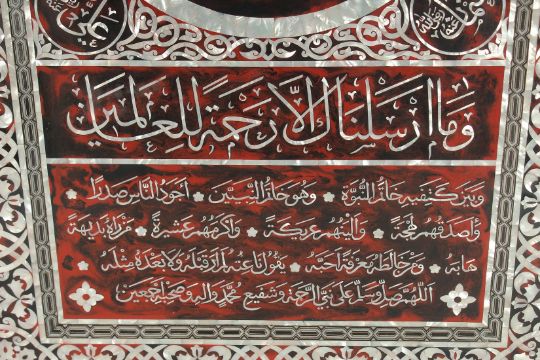 وما ارسلناك الا رحمة للعالمين
وبين كتفيه خاتم النبوة وهو خاتم النبيين اجود الناس صدرا
واصدقهم لهجة والينهم عريكة واكرمهم عشرة من رآه بديهة
هابه ومن خالطه معرفة احبه يقول ناعته لم ار قبله ولا بعده مثله
اللهم صل وسلم على نبي الرحمة وشفيع محمد واله وصحبه اجمعين